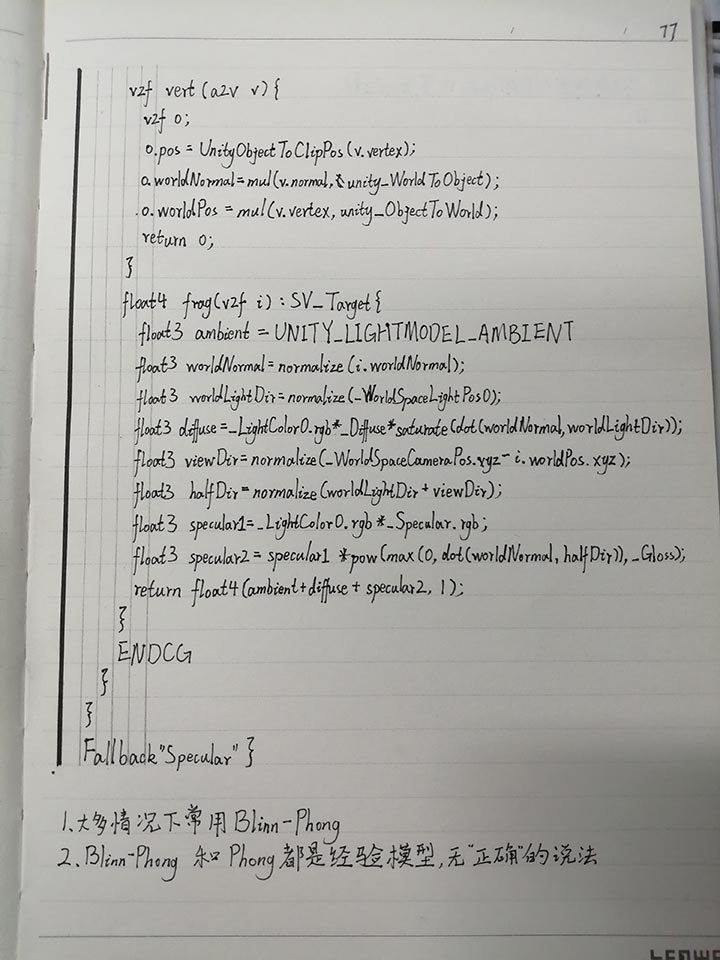 77
v2f vert(a2v v){
v2f o;
o.pos = UnityObjectToClipPos(v.vertex);
o.worldNormal=mul(v.normal, unity_WorldToObject);
o.worldPos = mul(v.vertex, unity_ObjectToWorld);
return o;
}
float4 frag(v2f i) : SV_Target{
float3 ambient = UNITY_LIGHTMODEL_AMBIENT
float3 worldNormal=normalize(i.worldNormal);
float3 worldLightDir=normalize(_WorldSpaceLightPos0);
float3 diffuse=_LightColor0.rgb*_Diffuse*saturate(dot(worldNormal,worldLightDir));
float3 viewDir=normalize(_WorldSpaceCameraPos.xyz-i.worldPos.xyz);
float3 halfDir=normalize(worldLightDir+viewDir);
float3 specular1=_LightColor0.rgb*_Specular.rgb;
float3 specular2 = specular1 *pow(max(0, dot(worldNormal, halfDir)), _Gloss);
return float4(ambient+diffuse+specular2, 1);
}
ENDCG
}
}
Fallback"Specular" }
1.大多情况下常用Blinn-Phong
2.Blinn-Phong 和Phong都是经验模型,无"正确"的说法